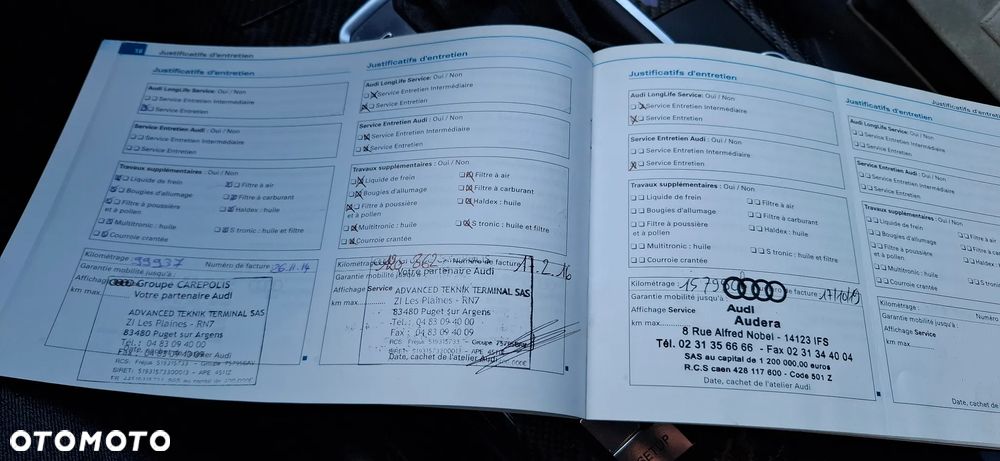 18 Justificatifs d'entretien
Justificatifs d'entretien
Audi LongLife Service: Oui / Non
Service Entretien Intermédiaire
Service Entretien
Service Entretien Audi : Oui / Non
Service Entretien Intermédiaire
Service Entretien
Travaux supplémentaires : Oui / Non
Liquide de frein
Filtre à air
Bougies d'allumage
Filtre à carburant
Filtre à poussière et à pollen
Haldex : huile
Multitronic : huile
S tronic : huile et filtre
Courroie crantée
Kilométrage : 99937 Numéro de facture : 26.11.14
Garantie mobilité jusqu'à :
Affichage
km max.
Groupe CAREPOLIS
Votre partenaire Audi
ADVANCED TEKNIK TERMINAL SAS
ZI Les Plaines - RN7
83480 Puget sur Argens
Tél.: 04 83 09 40 00
Fax : 04 83 09 40 09
Justificatifs d'entretien
Audi LongLife Service: Oui / Non
Service Entretien Intermédiaire
Service Entretien
Service Entretien Audi : Oui / Non
Service Entretien Intermédiaire
Service Entretien
Travaux supplémentaires : Oui / Non
Liquide de frein
Filtre à air
Bougies d'allumage
Filtre à carburant
Filtre à poussière
et à pollen
Haldex : huile
Multitronic : huile
S tronic : huile et filtre
Courroie crantée
Kilométrage Numéro de facture 17.2.16
Garantie mobilité jusqu'à
Votre partenaire Audi
Affichage Service
km max.
ADVANCED TEKNIK TERMINAL SAS
ZI Les Plaines - RN7
83480 Puget sur Argens
Tél.: 04 83 09 40 00
Fax : 04 83 09 40 09
Date, cachet de l'atelier Audi
Justificatifs d'entretien
Audi LongLife Service: Oui / Non
Service Entretien Intermédiaire
Service Entretien
Service Entretien Audi : Oui / Non
Service Entretien Intermédiaire
Service Entretien
Travaux supplémentaires : Oui / Non
Liquide de frein
Filtre à air
Bougies d'allumage
Filtre à carburant
Filtre à poussière
et à pollen
Haldex : huile
Multitronic : huile
S tronic : huile et filtre
Courroie crantée
Kilométrage : de facture
Garantie mobilité jusqu'à
Affichage Service
km max.
Audi
Audera
8 Rue Alfred Nobel - 14123 IFS
Tél. 02 31 35 66 66 - Fax 02 31 34 40 04
SAS au capital de 1 200 000,00 euros
R.C.S caen 428 117 600 - Code 501 Z
Date, cachet de l'atelier Audi
Justificatifs d'entretien
Justificatifs d'entretien
Audi LongLife Service: Oui / Non
Service Entretien Intermédiaire
Service Entretien
Service Entretien Audi : Oui / Non
Service Entretien Intermédiaire
Service Entretien
Travaux supplémentaires : Oui / Non
Liquide de frein
Filtre à air
Bougies d'allumage
Filtre à
Filtre à poussière
et à pollen
Haldex
Multitronic : huile
S tronic
Courroie crantée
Kilométrage : Numéro
Garantie mobilité jusqu'à :
Affichage Service
km max.
Date, cachet
OTOMOTO